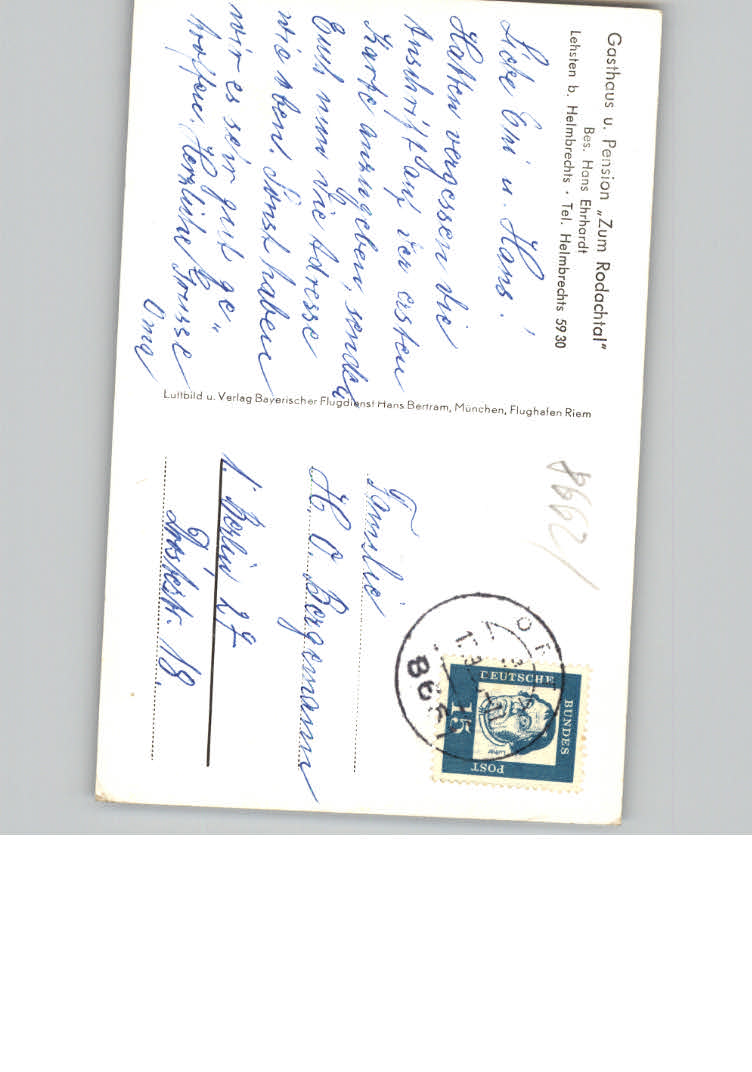 Gasthaus u. Pension „Zum Rodachtal"
Bes. Hans Ehrhardt
Lehsten b. Helmbrechts · Tel. Helmbrechts 5930
Liebe Evi u. Hans!
Hatten vergessen die
Anschrift auf der ersten
Karte anzugeben, senden
Euch nun die Adresse
wie oben. Sonst haben
wir es sehr gut ge„
troffen. Herzliche Grüsse
Oma
Luftbild u. Verlag Bayerischer Flugdienst Hans Bertram, München, Flughafen Riem
Familie
H. O. Bergemann
1 Berlin 27
18.
DEUTSCHE
BUNDES
POST
15
Luther